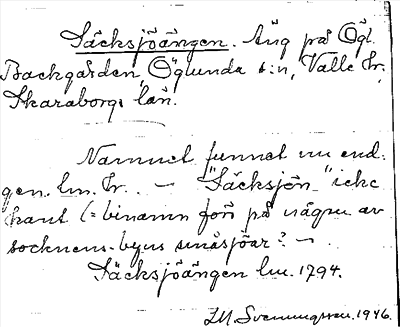 Säcksjöängen. Äng på Ögl.
Backgården, Öglunda s:n, Valle hr,
Skaraborgs län.
Namnet funnet nu end.
gen. lm. hr. — "Säcksjön" icke
känt (= binamn för på någon av
socknens-byns småsjöar? —
Säcksjöängen lm. 1794.
I.M. Svenningsson. 1946.